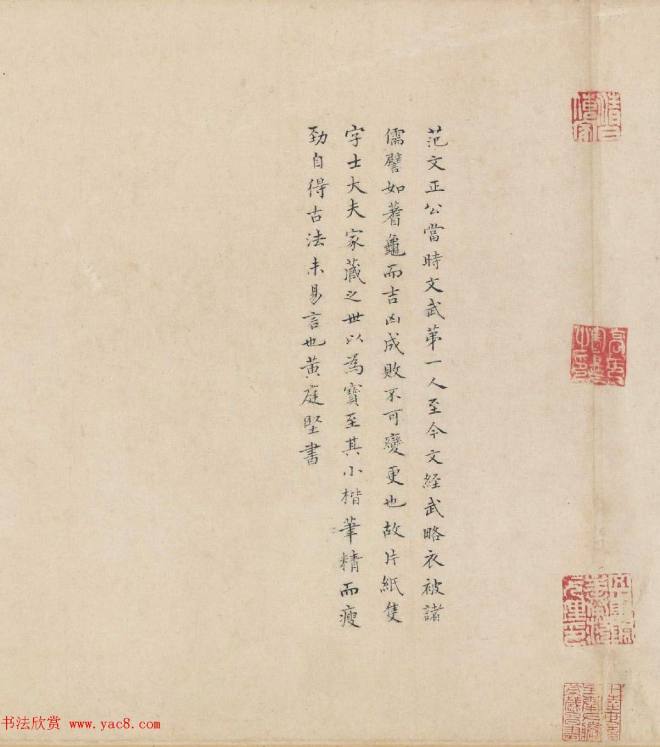 范文正公當時文武第一人至今文經武略衣被諸
儒譬如蓍龜而吉凶成敗不可變更也故片紙隻
字士大夫家藏之世以為寶至其小楷筆精而瘦
勁自得古法未易言也黃庭堅書
书法欣赏 www.yac8.com